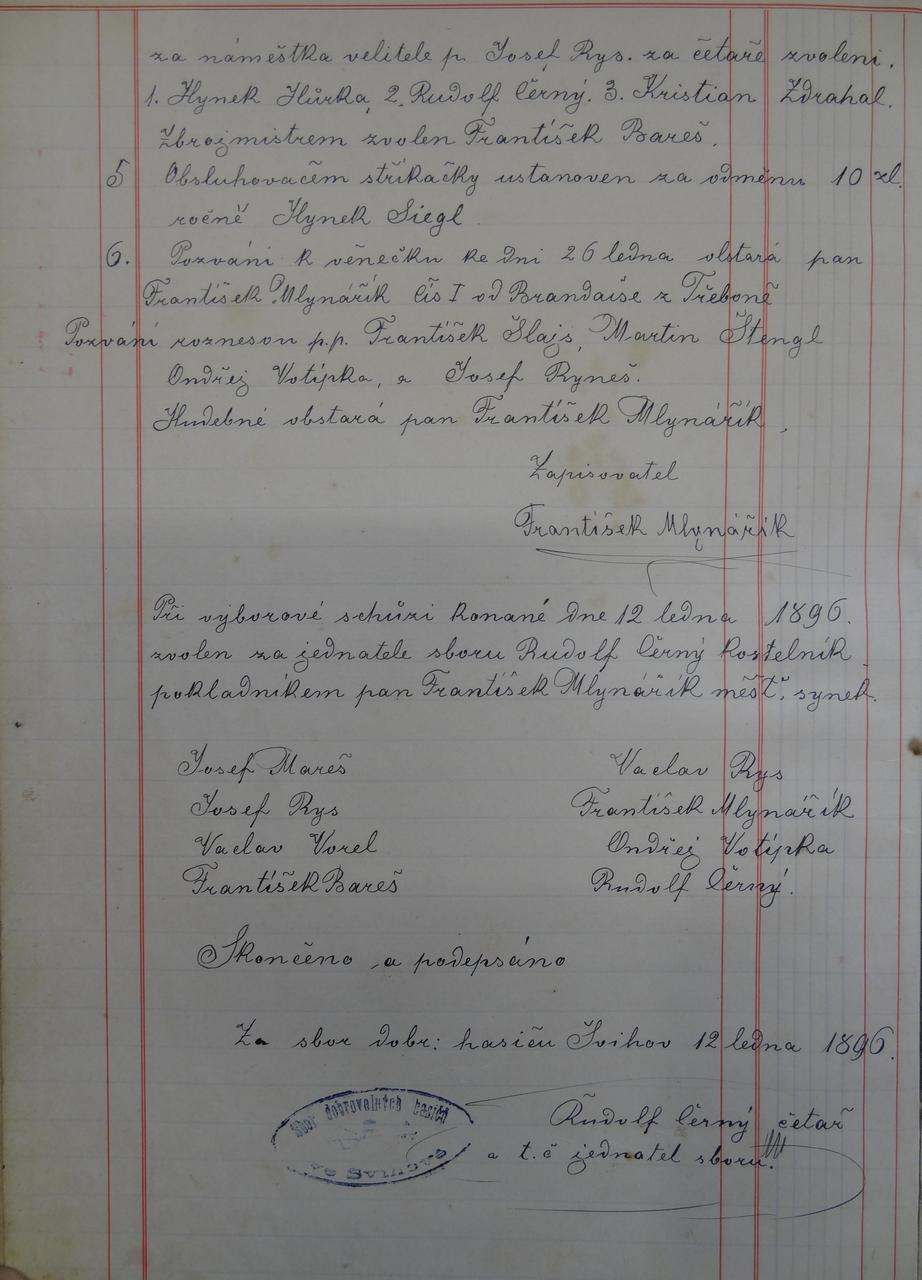 za náměstka velitele p. Josef Rys. za četaře zvoleni.
1. Hynek Hůrka, 2. Rudolf Černý. 3. Kristian Zdrahal.
Zbrojmistrem zvolen František Bareš.
5 Obsluhovačem stříkačky ustanoven za odměnu 10 zl.
ročně Hynek Siegl
6. Pozvání k věnečku ke dni 26 ledna obstará pan
František Mlynářík čís I od Brandaise z Třeboně
Pozvání roznesou p.p. František Šlajs, Martin Štengl
Ondřej Votípka, a Josef Ryneš.
Hudebné obstará pan František Mlynářík,
Zapisovatel
František Mlynářík
Při výborové schůzi konané dne 12 ledna 1896.
zvolen za jednatele sboru Rudolf Černý kostelník
pokladníkem pan František Mlynářík měšť. synek.
Josef Mareš Vaclav Rys
Josef Rys František Mlynářík
Vaclav Vorel Ondřej Votípka
František Bareš Rudolf Černý.
Skončeno a podepsáno
Za sbor dobr: hasičů Švihov 12 ledna 1896.
Sbor dobrovolných hasičů
ve Švihově
Rudolf Černý četař
a t.č jednatel sboru.